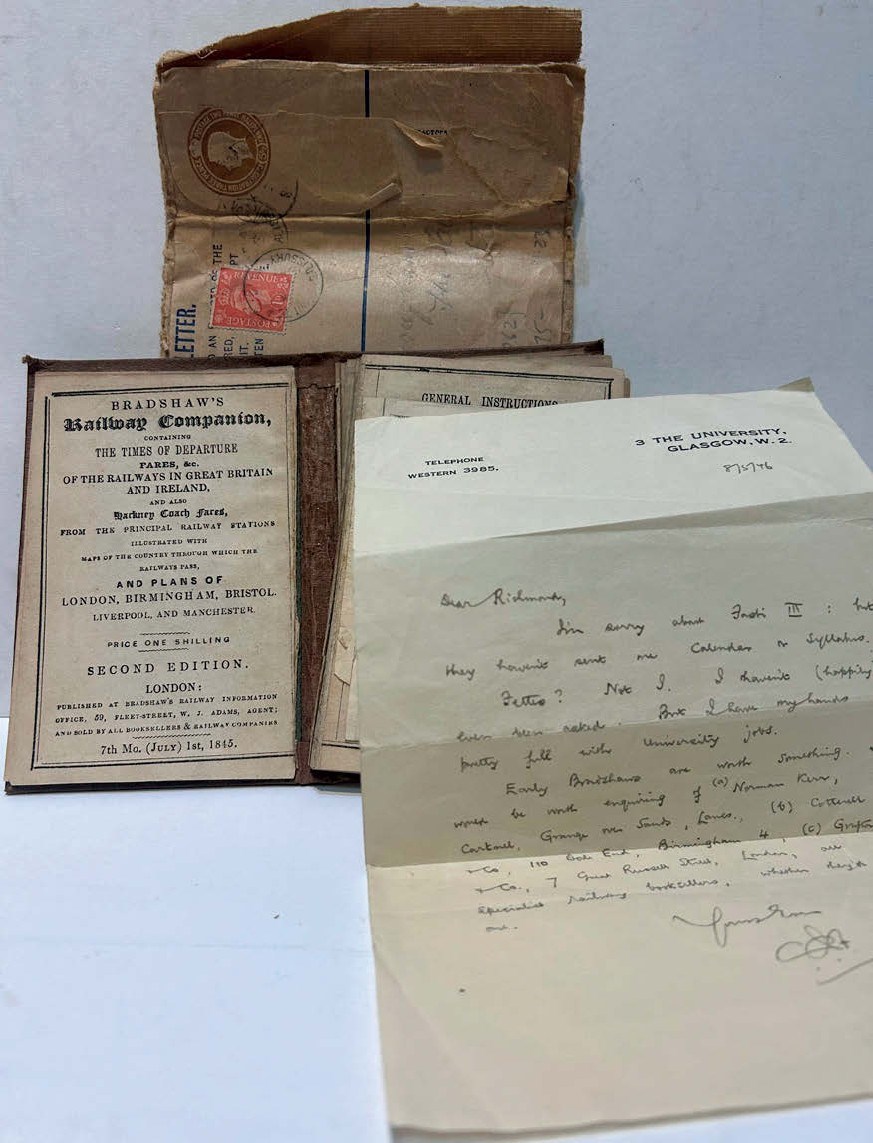 REGISTRATION THREE PENCE
LETTER.
THE
REVENUE
POSTAGE
BRADSHAW'S
Railway Companion,
CONTAINING
THE TIMES OF DEPARTURE
FARES, &c.
OF THE RAILWAYS IN GREAT BRITAIN
AND IRELAND,
AND ALSO
Hackney Coach Fares,
FROM THE PRINCIPAL RAILWAY STATIONS
ILLUSTRATED WITH
MAPS OF THE COUNTRY THROUGH WHICH THE
RAILWAYS PASS,
AND PLANS OF
LONDON, BIRMINGHAM, BRISTOL.
LIVERPOOL, AND MANCHESTER.
PRICE ONE SHILLING
SECOND EDITION.
LONDON:
PUBLISHED AT BRADSHAW'S RAILWAY INFORMATION
OFFICE, 59, FLEET-STREET, W. J. ADAMS, AGENT;
AND SOLD BY ALL BOOKSELLERS & RAILWAY COMPANIES
7th Mo. (JULY) 1st, 1845.
GENERAL INSTRUCTIONS
TELEPHONE
WESTERN 3985.
3 THE UNIVERSITY,
GLASGOW, W. 2.
8/5/46
Dear Richmond,
I'm sorry about Fasti III : but
they haven't sent me Calendar or Syllabus.
Fettes? Not I. I haven't (happily)
even been asked. But I have my hands
pretty full with University jobs.
Early Bradshaws are worth something.
would be worth enquiring of (a) Norman Kerr,
Cartmel, Grange over Sands, Lancs., (b) Cotterell
& Co, 110 Dale End, Birmingham 4, (c)
& Co., 7 Great Russell Street, London, all
specialist railway booksellers, whether they'd
one.
Yours Ever